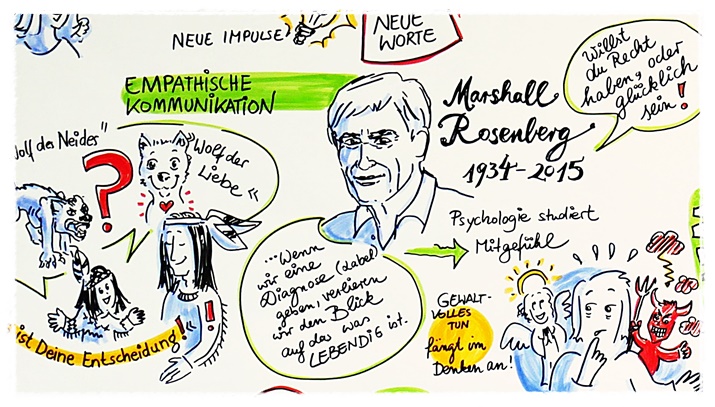 NEUE IMPULSE
NEUE
WORTE
EMPATHISCHE
KOMMUNIKATION
Marshall
Rosenberg
1934-2015
Willst
du Recht
haben, oder
glücklich
sein!
Psychologie studiert
Mitgefühl
olf des Neides"
Wolf der
Liebe "
?
...Wenn
wir eine
Diagnose (Label)
geben, verlieren
wir den Blick
auf das was
LEBENDIG ist.
GEWALT-
VOLLES
TUN
fängt im
Denken an!
ist Deine Entscheidung!"
!